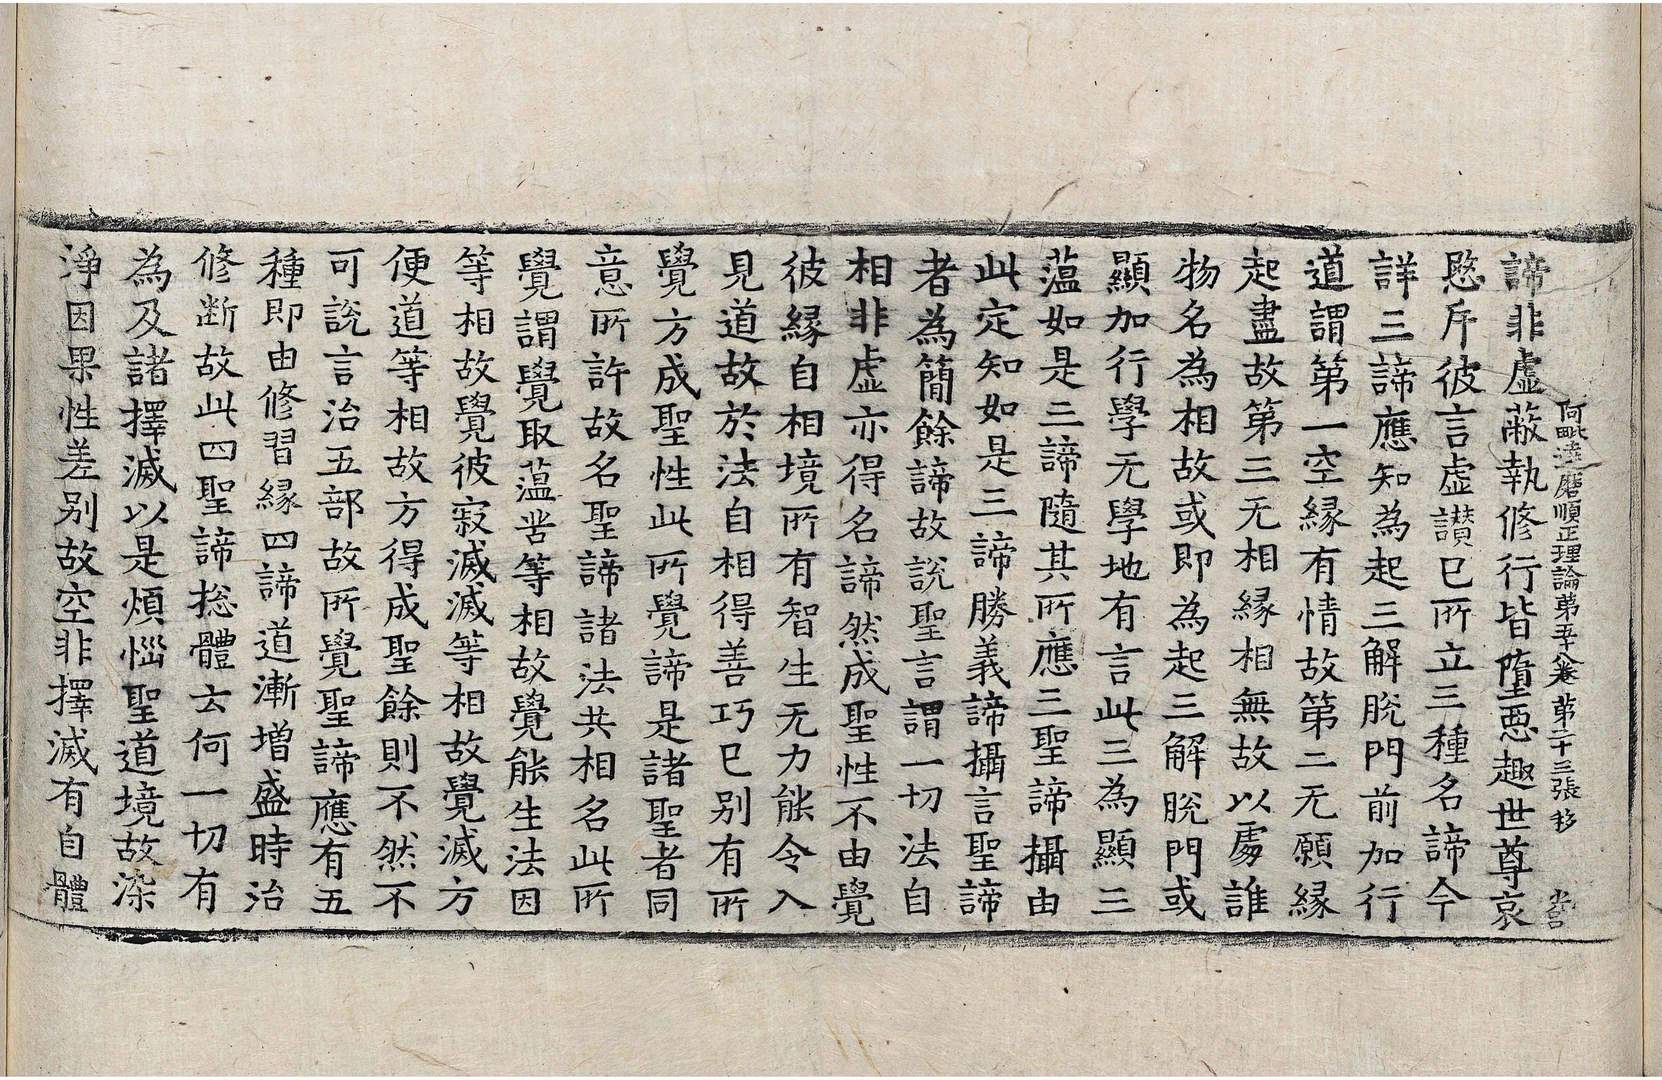 阿毗達磨順正理論第五十八卷 第二十三張 移
諦非虛蔽執修行皆墮惡趣世尊哀
愍斥彼言虛讃已所立三種名諦今
詳三諦應知為起三解脫門前加行
道謂第一空縁有情故第二无願縁
起盡故第三无相縁相無故以䖏誰
物名為相故或即為起三解脫門或
顯加行學无學地有言此三為顯三
薀如是三諦隨其所應三聖諦攝由
此定知如是三諦勝義諦攝言聖諦
者為簡餘諦故說聖言謂一切法自
相非虛亦得名諦然成聖性不由覺
彼縁自相境所有智生无力能令入
見道故於法自相得善巧已别有所
覺方成聖性此所覺諦是諸聖者同
意所許故名聖諦諸法共相名此所
覺謂覺取薀苦等相故覺能生法因
等相故覺彼寂滅滅等相故覺滅方
便道等相故方得成聖餘則不然不
可說言治五部故所覺聖諦應有五
種即由修習縁四諦道漸增盛時治
修断故此四聖諦揔體云何一切有
為及諸擇滅以是煩惱聖道境故染
淨因果性差别故空非擇滅有自體